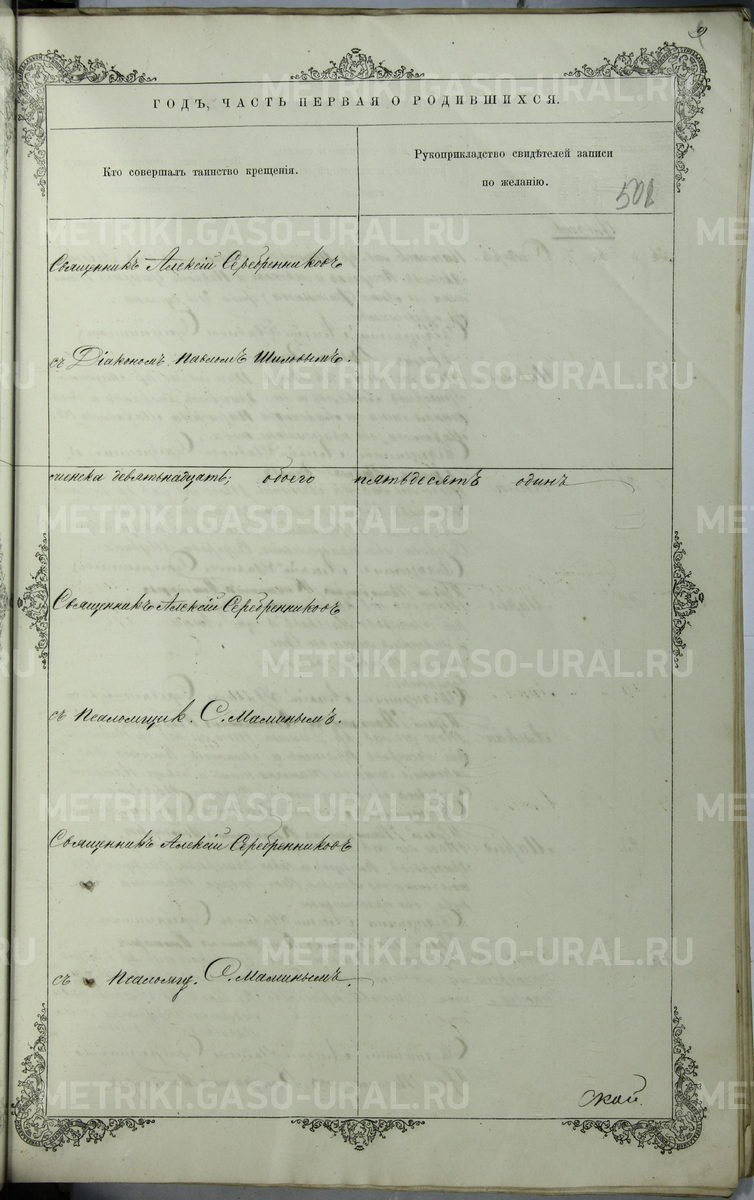 9
ГОДЪ, ЧАСТЬ ПЕРВАЯ О РОДИВШИХСЯ.
Кто совершалъ таинство крещенія.
Рукоприкладство свидѣтелей записи
по желанію.
508
Священникъ Алексій Серебренниковъ
съ Діакономъ Павломъ Шиловымъ.
женска девятьнадцать; обоего пятьдесятъ одинъ
Священникъ Алексій Серебренниковъ
съ Псаломщик. С. Маминымъ.
Священникъ Алексій Серебренниковъ
съ Псаломщ. С. Маминымъ.
Скай.
METRIKI.GASO-URAL.RU